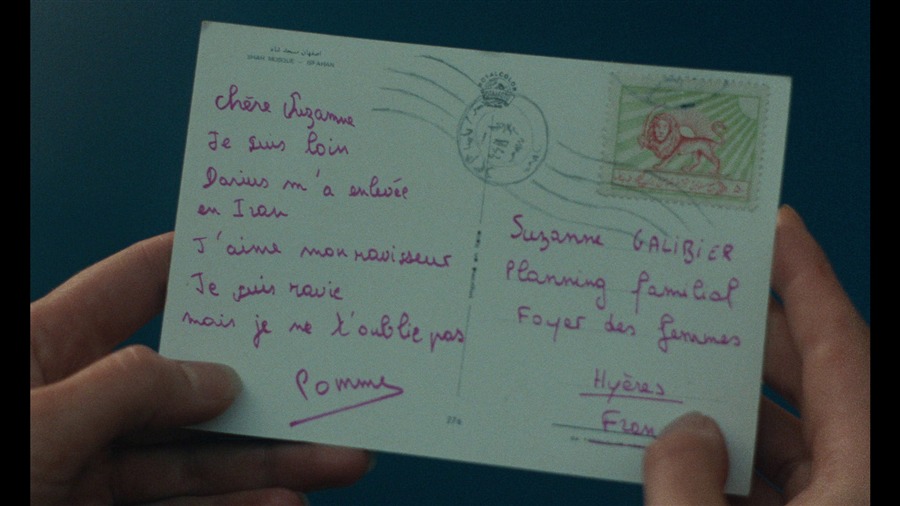 اصفهان مسجد شاه
SHAH MOSQUE - ISFAHAN
ROYALCOLOR
chère Suzanne
Je suis loin
Darius m'a enlevée
en Iran
J'aime mon ravisseur
Je suis ravie
mais je ne t'oublie pas
Pomme
Suzanne GALIBIER
Planning familial
Foyer des femmes
Hyères
Fran
274